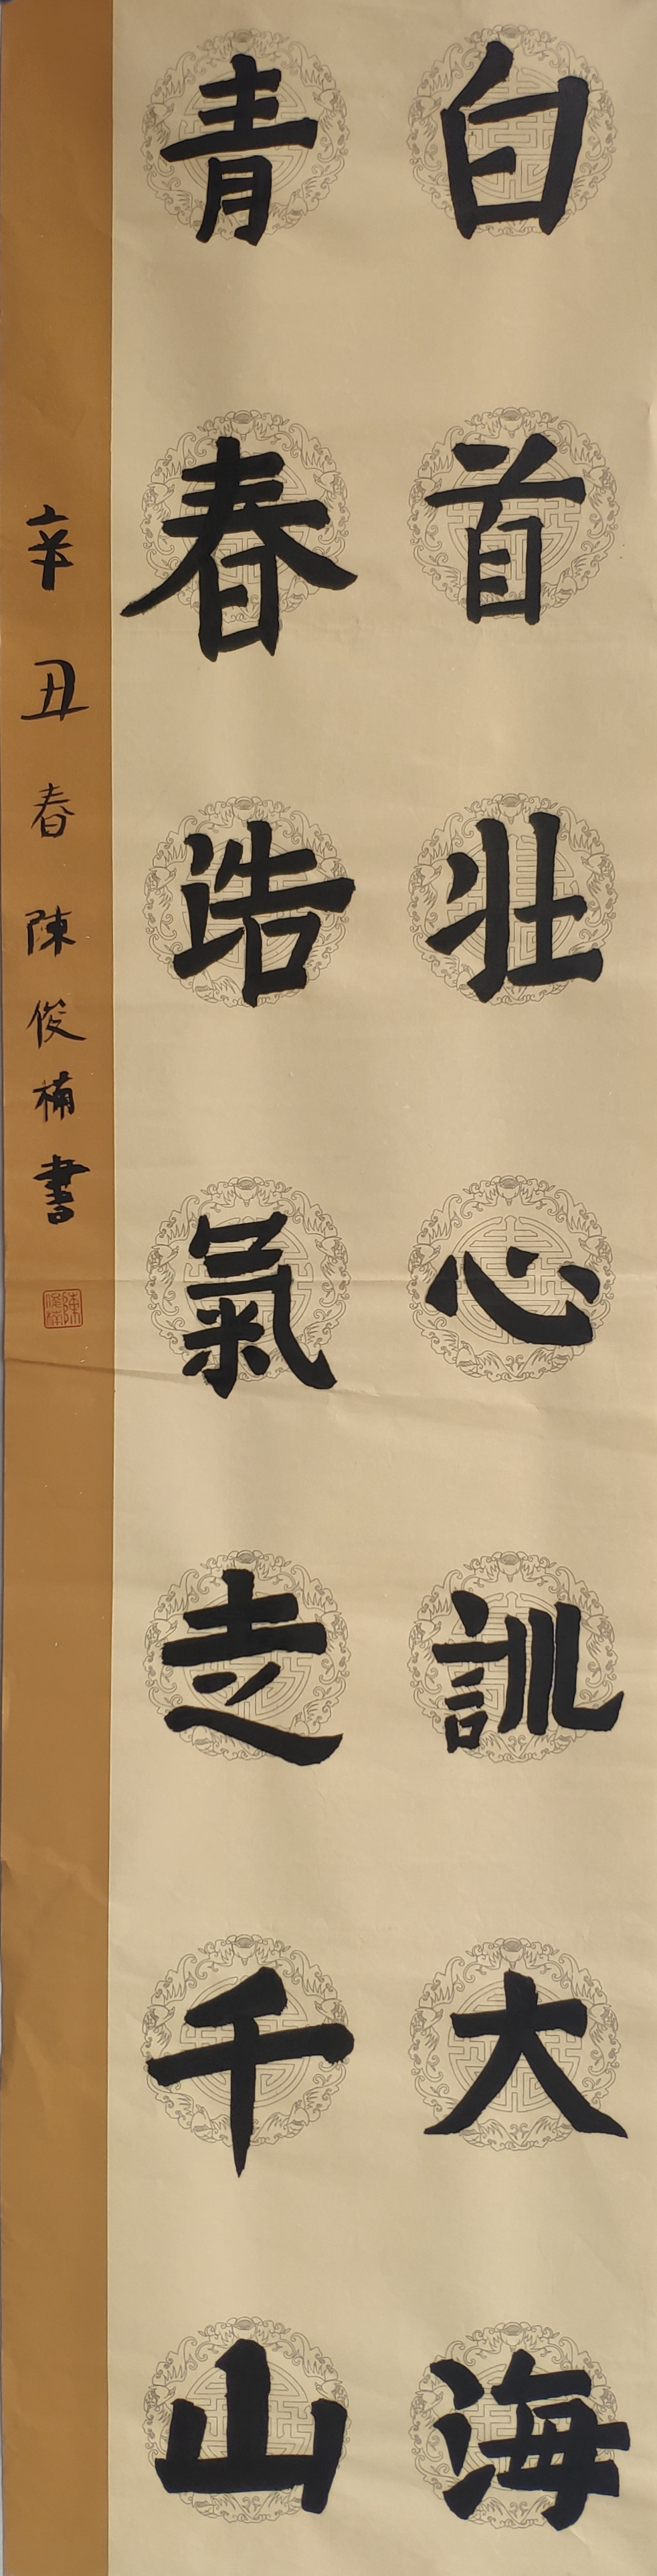 白首壮心訓大海
青春浩氣走千山
辛丑春陳俊楠書
陳俊楠